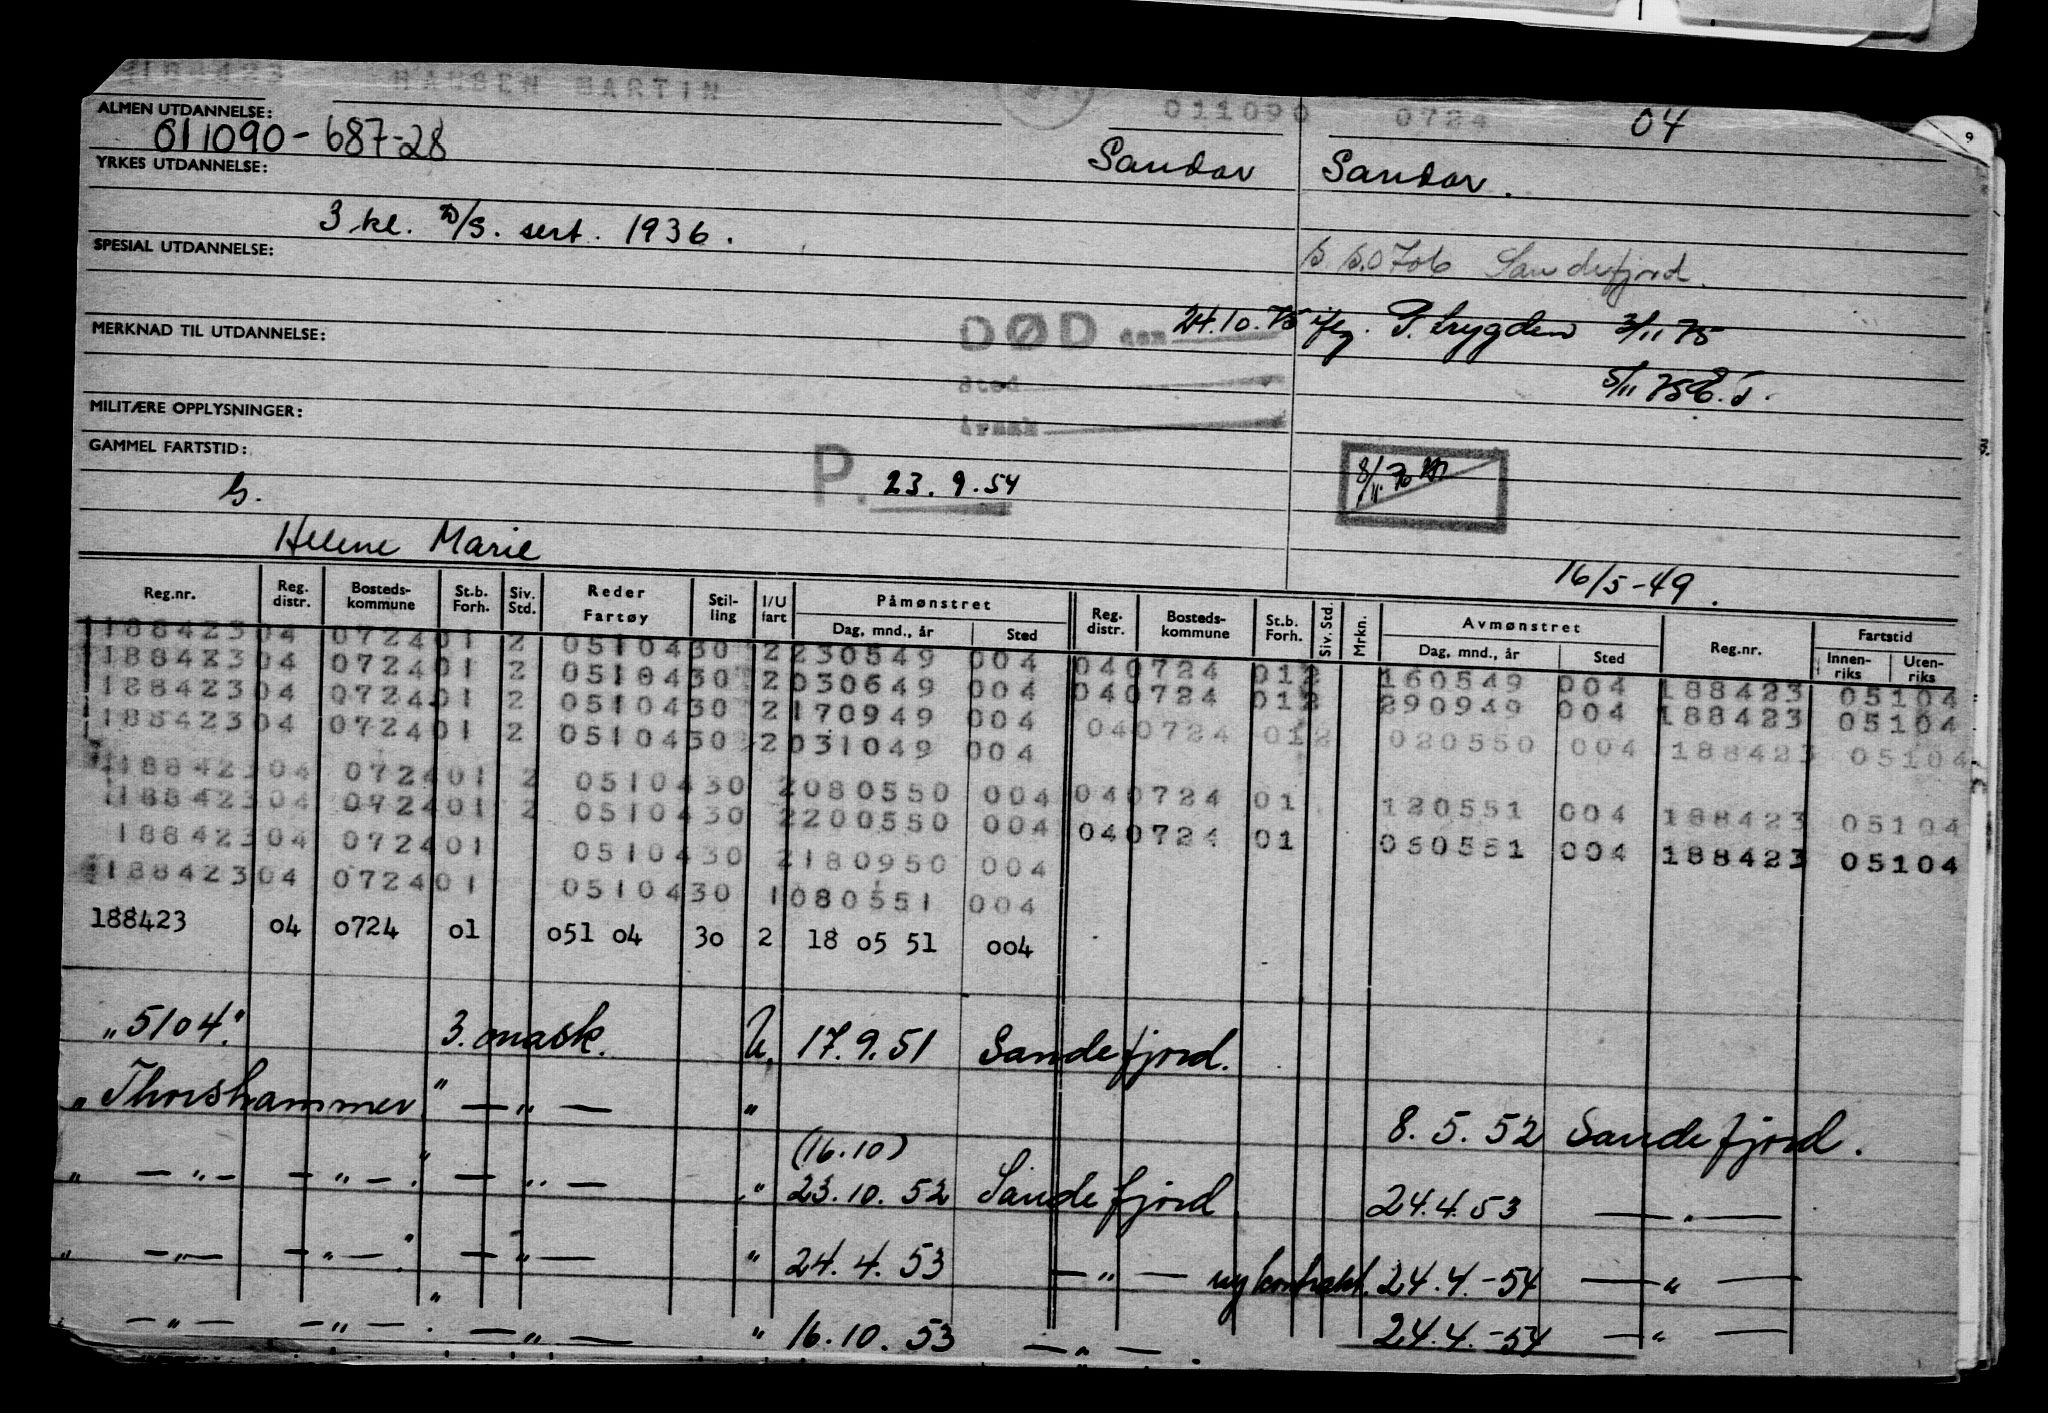 188423 HANSEN MARTIN 011090 0724 04
ALMEN UTDANNELSE:
011090-687-28
YRKES UTDANNELSE:
Sandar Sandar.
3 kl. D/S. sert. 1936.
SPESIAL UTDANNELSE:
Sandefjord.
MERKNAD TIL UTDANNELSE:
DØD den 24.10.75 ifg. P. trygden 3/11 75
Sted
årsak
5/11 75
MILITÆRE OPPLYSNINGER:
GAMMEL FARTSTID:
P. 23.9.54
8/11.70
G.
Helene Marie
16/5-49.
Reg.nr. Reg. distr. Bosteds-kommune St.b. Forh. Siv. Std. Reder Fartøy Stil-ling I/U fart Påmønstret Dag, mnd., år Sted Reg. distr. Bosteds-kommune St.b. Forh. Siv. Std. Mrkn. Avmønstret Dag, mnd., år Sted Reg.nr. Fartstid Innen-riks Uten-riks
188423 04 0724 01 2 05104 30 2 230549 004 04 0724 01 2 160549 004 188423 05104
188423 04 0724 01 2 05104 30 2 030649 004 04 0724 01 2 290949 004 188423 05104
188423 04 0724 01 2 05104 30 2 170949 004 04 0724 01 2 020550 004 188423 05104
188423 04 0724 01 2 05104 30 2 031049 004
188423 04 0724 01 2 05104 30 2 080550 004 04 0724 01 120551 004 188423 05104
188423 04 0724 01 2 05104 30 2 200550 004 04 0724 01 050551 004 188423 05104
188423 04 0724 01 05104 30 2 180950 004
188423 04 0724 01 05104 30 1 080551 004
188423 04 0724 01 051 04 30 2 18 05 51 004
"5104". 3. mask. U. 17.9.51 Sandefjord.
" Thorshammer " — " — " 8. 5. 52 Sandefjord.
(16.10)
" — " — — " — " — " — " 23.10. 52 Sandefjord. 24.4.53 — " —
" — " — — " — " — " — " 24. 4. 53 — " — ny kontrakt. 24.4.-54 — " —
" — " — — " — " — " — " 16.10. 53 — " — 24.4.-54 — " —